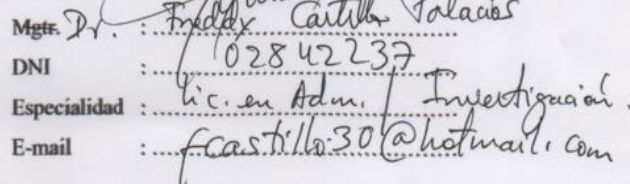 Mgtr. Dr. : Freddy Castillo Palacios
DNI : 02842237
Especialidad : Lic. en Adm. / Investigación.
E-mail : fcastillo30@hotmail.com